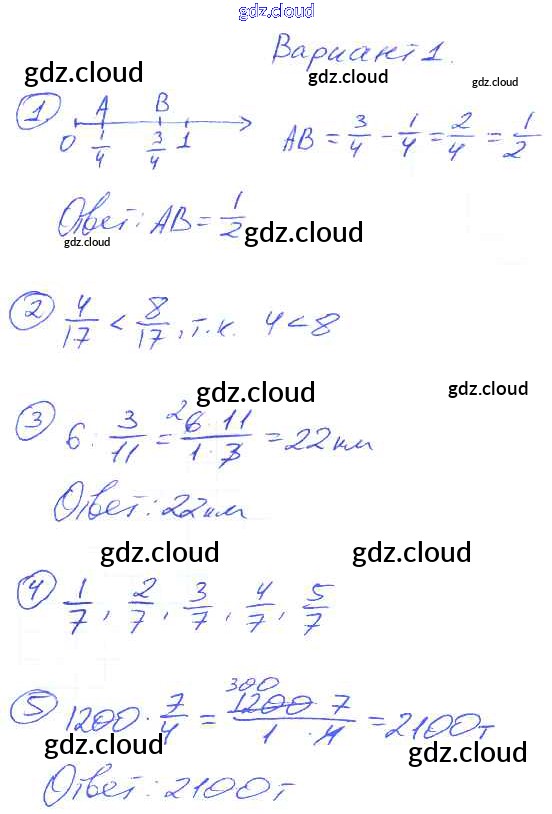 gdz.cloud
Вариант 1.
gdz.cloud gdz.cloud gdz.cloud
1 A B
0 1/4 3/4 1 AB = 3/4 - 1/4 = 2/4 = 1/2
Ответ: AB = 1/2
gdz.cloud gdz.cloud
2 4/17 < 8/17, т.к. 4 < 8
gdz.cloud gdz.cloud
3 6 : 3/11 = 2 6 · 11 / 1 · 3 = 22 км
Ответ: 22 км
gdz.cloud gdz.cloud
4 1/7, 2/7, 3/7, 4/7, 5/7
gdz.cloud gdz.cloud
5 1200 · 7/4 = 300 1200 · 7 / 1 · 4 = 2100 т
gdz.cloud gdz.cloud
Ответ: 2100 т